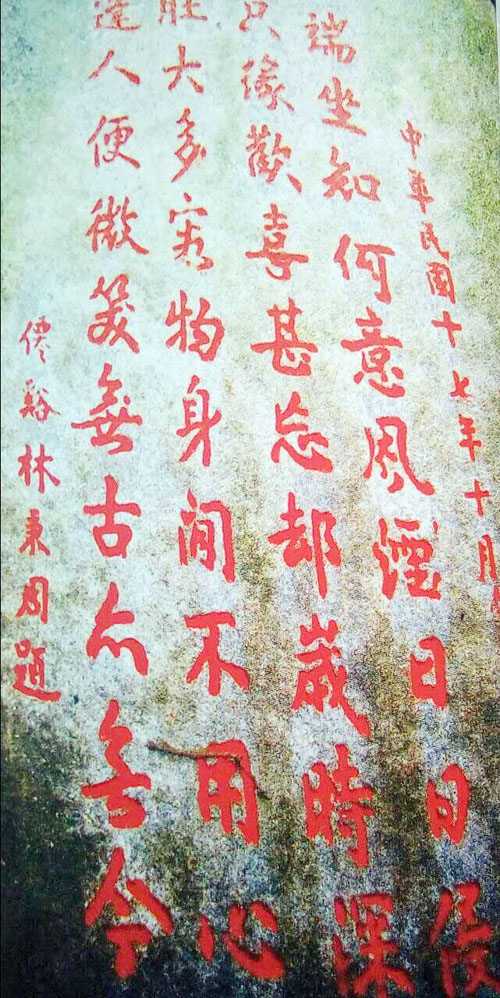 中華民國十七年十月
端坐知何意風煙日日侵
只緣歡喜甚忘却歲時深
肚大多容物身閒不用心
逢人便微笑無古亦無今
僊谿林秉周題